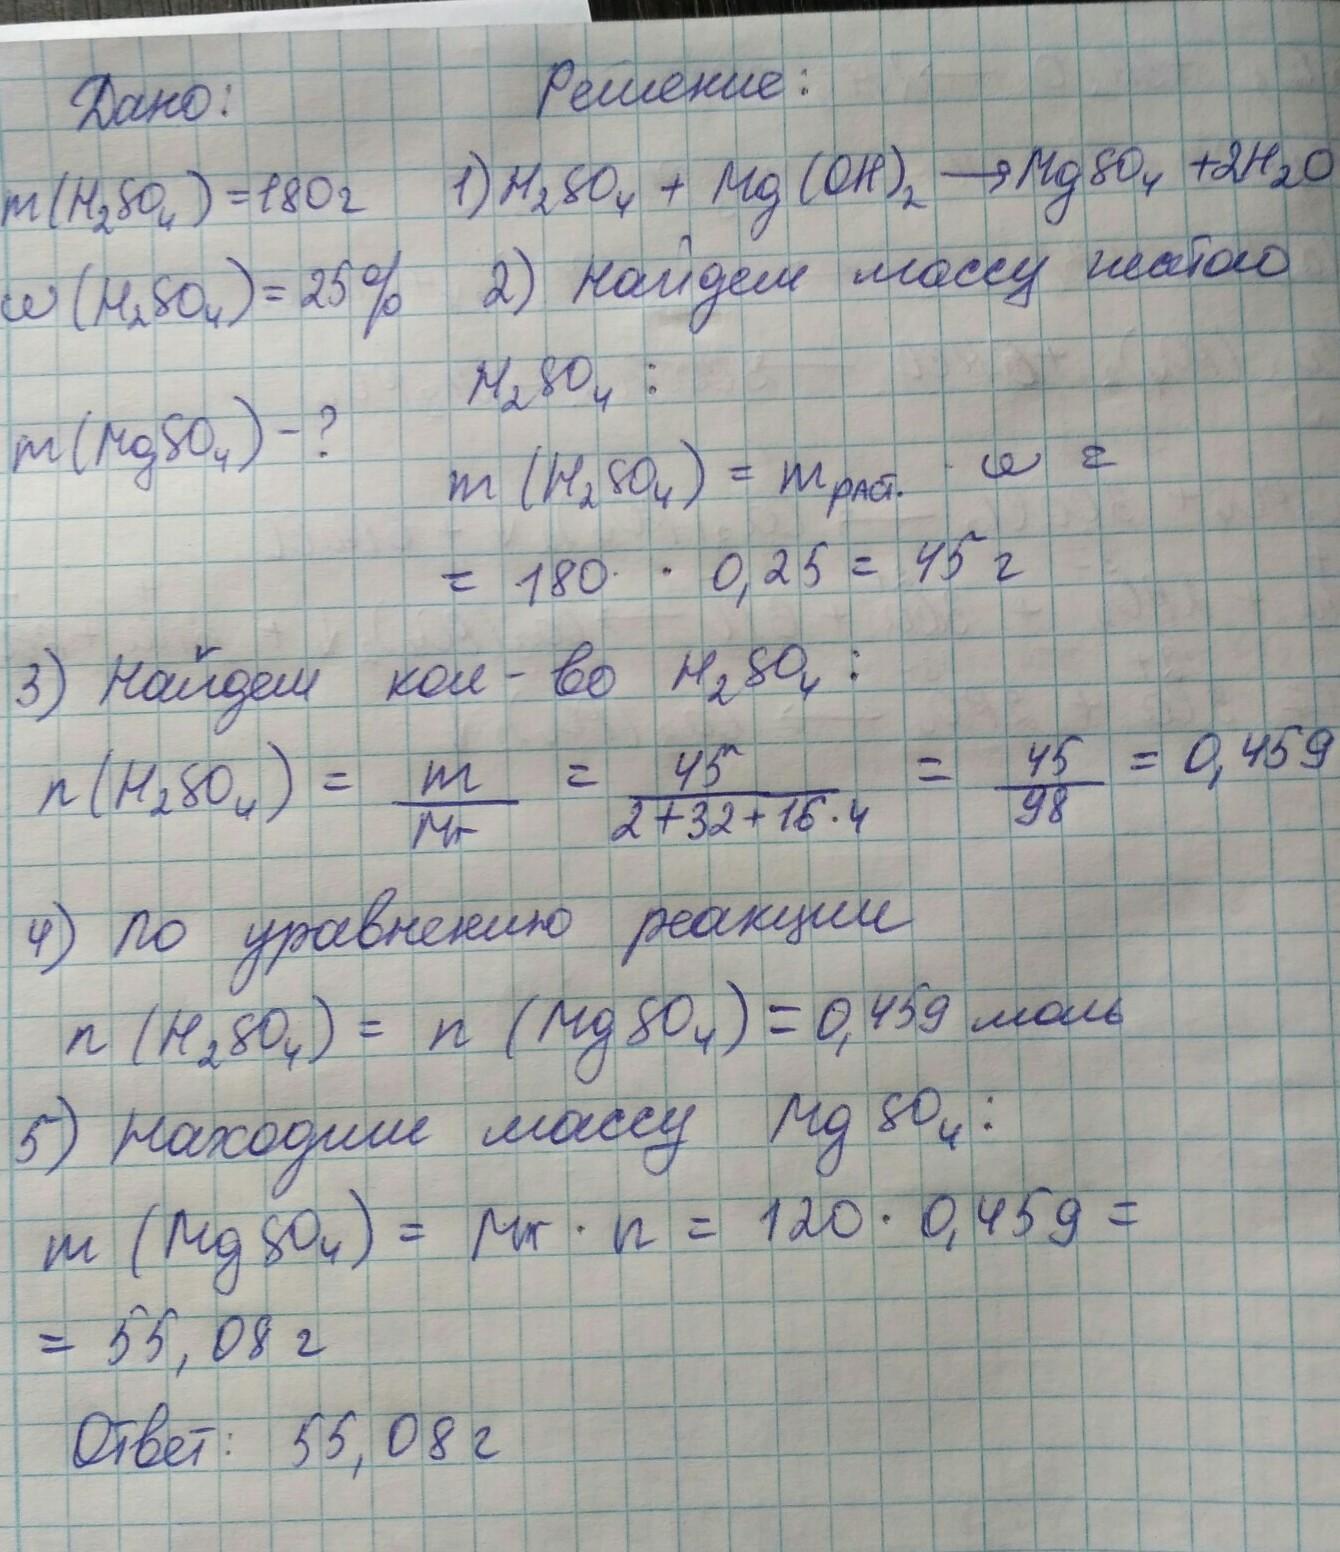 Дано: Решение:
m(H₂SO₄)=180г 1) H₂SO₄ + Mg(OH)₂ → MgSO₄ + 2H₂O
ω(H₂SO₄)=25% 2) Найдем массу чистого
H₂SO₄ :
m(MgSO₄) - ?
m (H₂SO₄) = m раст. · ω =
= 180 · 0,25 = 45 г
3) Найдем кол-во H₂SO₄ :
n(H₂SO₄) = m/Mr = 45/(2+32+16·4) = 45/98 = 0,459
4) По уравнению реакции
n (H₂SO₄) = n (MgSO₄) = 0,459 моль
5) Находим массу MgSO₄ :
m (MgSO₄) = Mr · n = 120 · 0,459 =
= 55,08 г
Ответ: 55,08 г